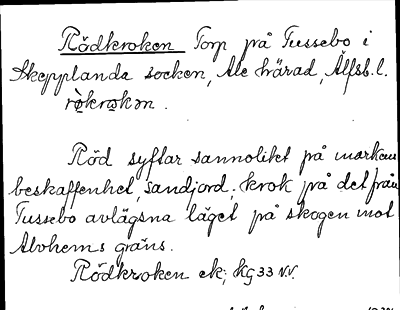 Rödkroken Torp på Tussebo i
Skepplanda socken, Ale härad, Älfsb. l.
rö̀krokən.
Röd syftar sannolikt på markens
beskaffenhet, sandjord; krok på det från
Tussebo avlägsna läget på skogen mot
Alvhems gräns.
Rödkroken ek; KG 33 NV.